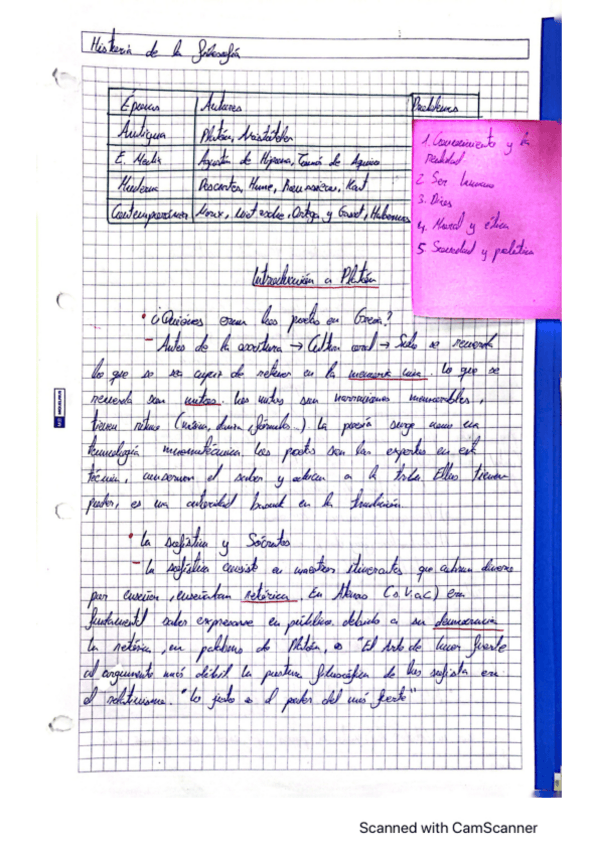 Historia de la filosofía
Épocas Autores Problemas
Antigua Platón, Aristóteles
E. Media Agustín de Hipona, Tomás de Aquino
Moderna Descartes, Hume, Rousseau, Kant
Contemporánea Marx, Nietzsche, Ortega y Gasset, Habermas
1. Conocimiento y la
realidad
2. Ser humano
3. Dios
4. Moral y ética
5 Sociedad y política
Introducción a Platón
• ¿Quiénes eran los poetas en Grecia?
- Antes de la escritura → Cultura oral → Solo se recuerda
lo que se es capaz de retener en la memoria. Lo que se
recuerda son mitos. Los mitos son narraciones memorables,
tienen ritmo (música, danza, fórmulas...) La poesía surge como una
tecnología mnemotécnica. Los poetas son los expertos en esta
técnica, conservan el saber y educan a la tribu. Ellos tienen
poder, es una autoridad basada en la tradición.
• La sofística y Sócrates
- La sofística consiste en maestros itinerantes que cobran dinero
por enseñar, enseñaban retórica. En Atenas (s.V a.C) era
fundamental saber expresarse en público debido a su democracia
La retórica, en palabras de Platón, es "El Arte de hacer fuerte
al argumento más débil. La postura filosófica de los sofista era
el relativismo. "Lo justo es el poder del más fuerte"
Scanned with CamScanner